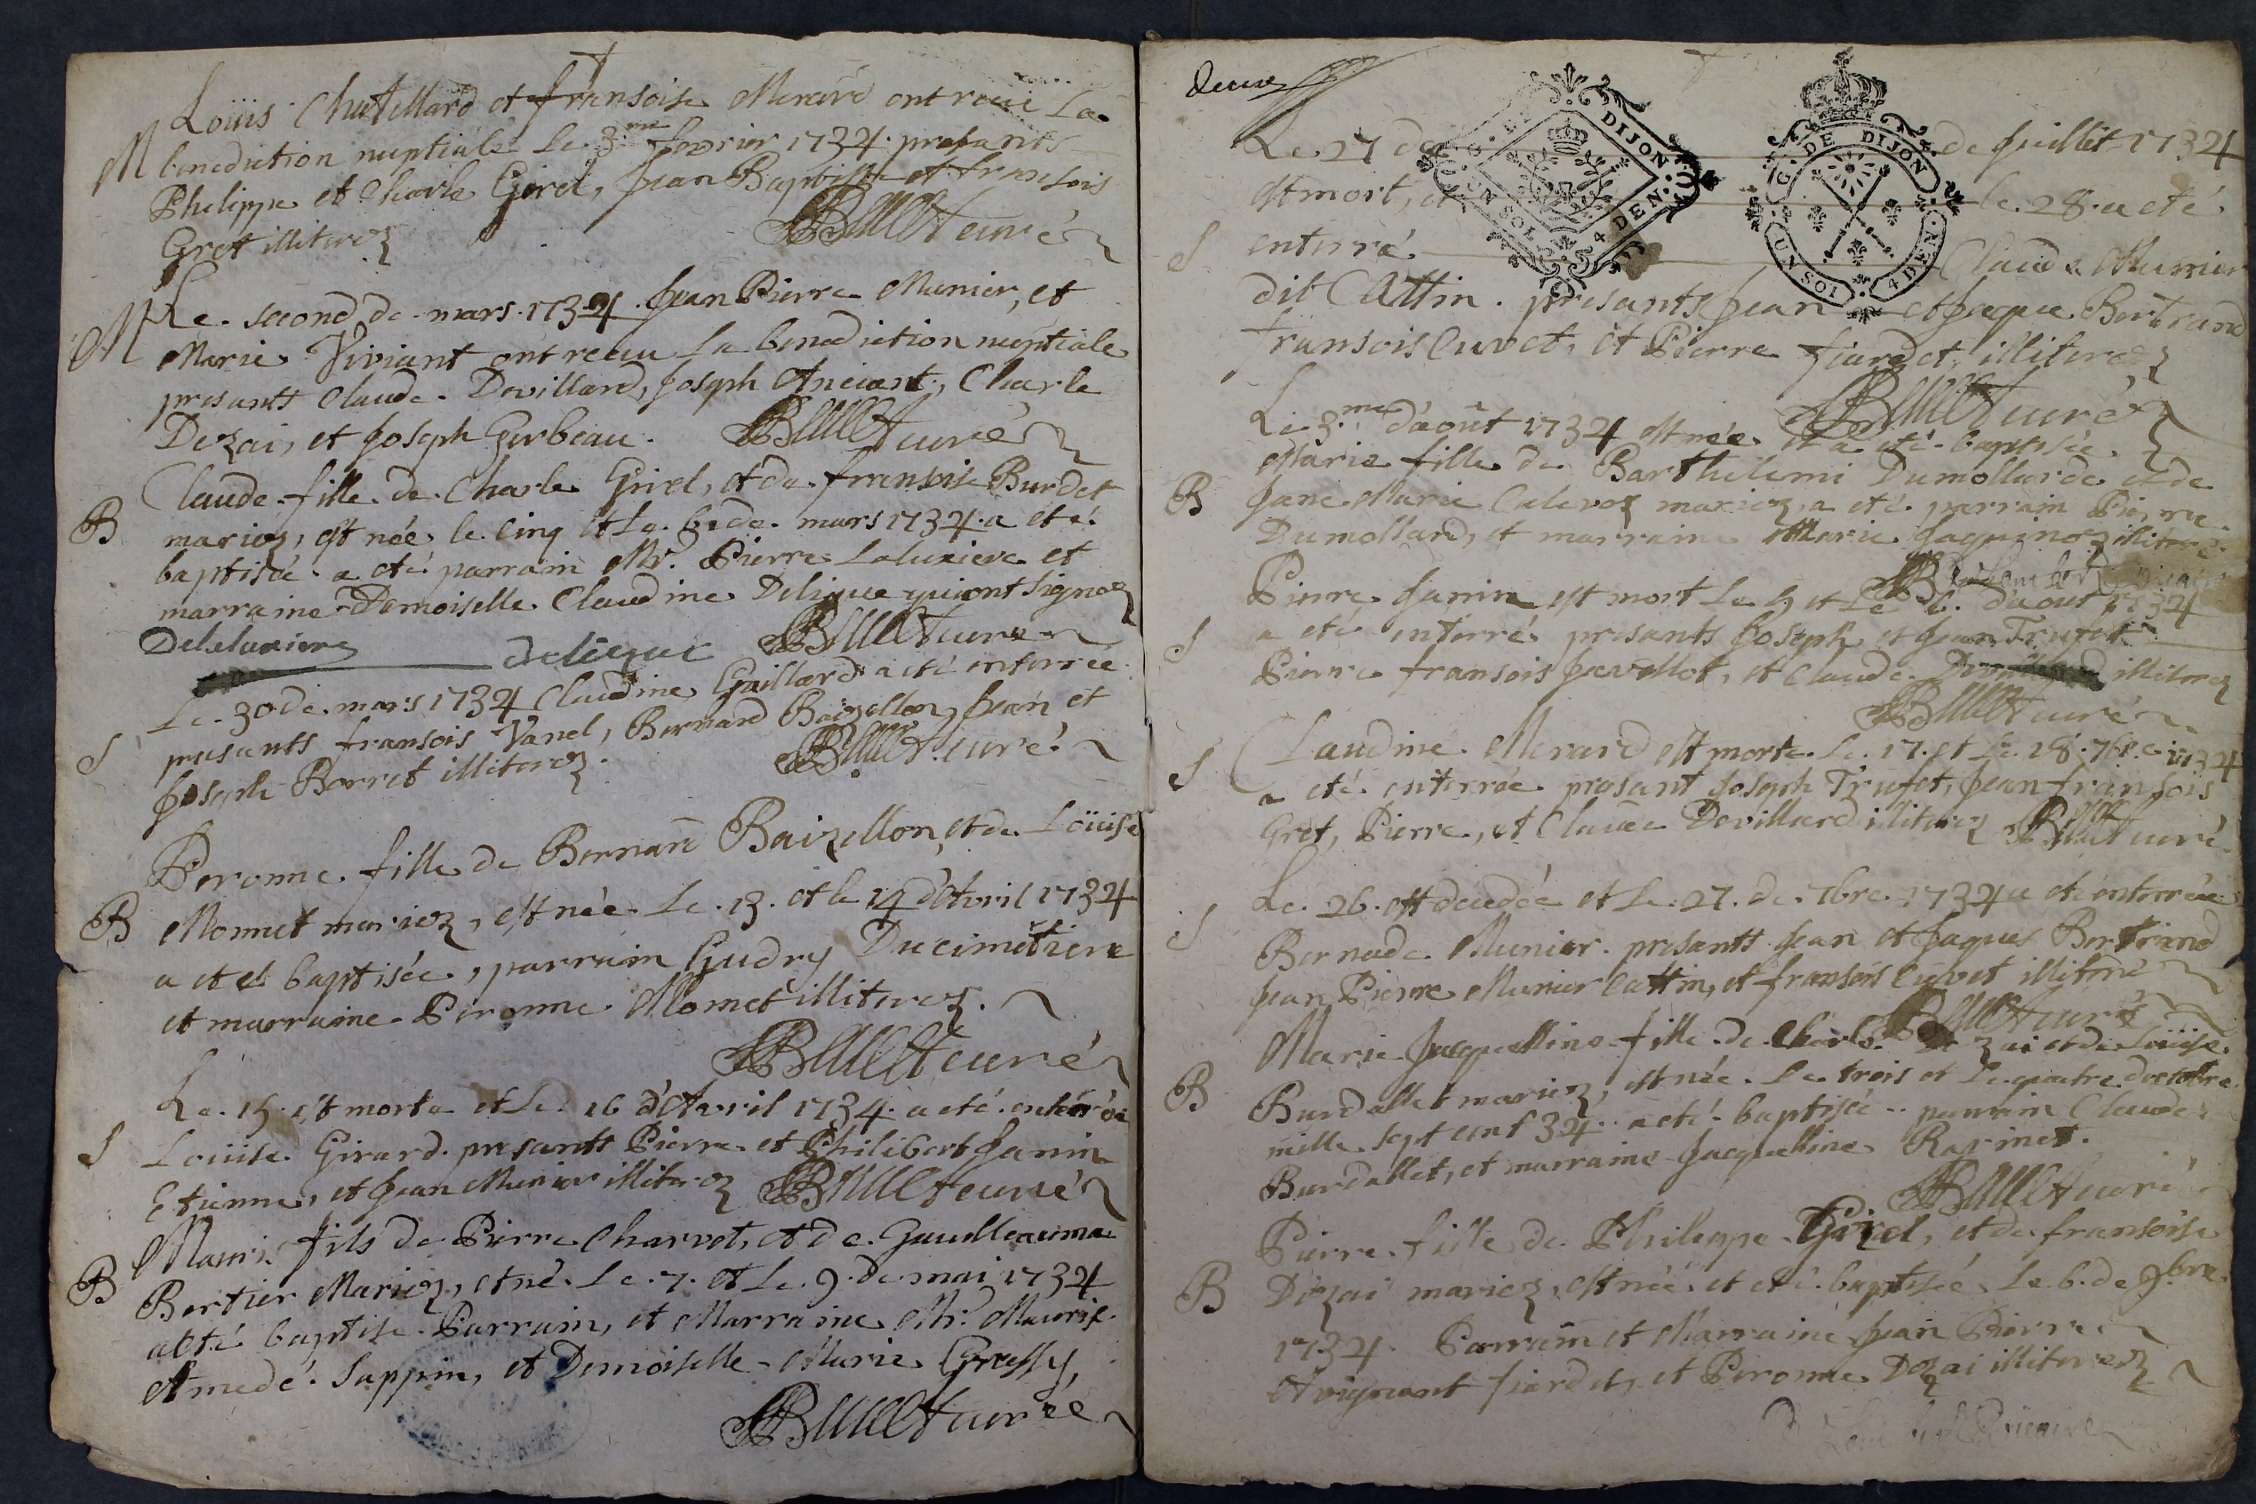 Loüis Chatillard et fransoise Merard ont recu La
M benediction nuptiale Le 3.me fevrier 1734. presants
Philippe et Charle Girel, Jean Baptiste et fransois
Gret illiterez BMllet curé
M Le second de mars 1734 Jean Pierre Munier, et
Marie Viviant ont receu La benediction nuptiale
presants Claude Devillard, Joseph Anciant, Charle
Dezai, et Joseph Gerbeau. curé
Claude fille de Charle Girel, et de fransoise Burdet
B mariez, est née le cinq et Le 6 de mars 1734 a eté
baptisée a eté parrain Mr. Pierre Laluxiere et
marraine Demoiselle Claudine Deligue qui ont signez
Delaluxiere deligue curé
Le 30 de mars 1734 Claudine Gaillard a eté enterrée
S presants fransois Vanel, Bernard Baizellon, Jean et
Joseph Borret illiterez. curé
Peronne fille de Bernard Baizellon, et de Loüise
B Monnet mariez, est née Le 13. et le 14 d'Avril 1734
a eté baptisée, parrain Gudry Ducimetiere
et marraine Peronne Momet illiterez.
curé
Le 15 est morte et Le 16 d'Avril 1734 a eté enterrée
S Loüise Girard presants Pierre et Philibert Janin
Etienne, et Jean Munier illiterez curé
Mauri fils de Pierre Charvet, et de
B Bertier Mariez, et né Le 7. et Le 9. de mai 1734
a eté baptise Parrain, et Marraine Mr. Mauris
Amedé Suppin, et Demoiselle Marie Grassy,
curé
deux
G. DE DIJON UN SOL 4 DEN.
G. DE DIJON UN SOL 4 DEN.
Le 27 de de Juillet 1734
est mort, et le 28 a eté
S enterré Claude Munier
dit Cattin. presants Jean et Jaque Bertrand
fransois Cuvet, et Pierre fiardet illiterez
curé
Le 3.me d'août 1734 est née et a eté baptisée
Marie fille de Barthelemi Dumollard et de
B Jane Marie Calevoz mariez, a eté parrain Pierre
Dumollard, et marraine Marie Jaquinoz illiterez
Pierre Janin est mort Le 5 et Le 6. d'aout 1734
S a eté enterré presants Joseph et Jean Trufet
Pierre fransois Javellot, et Claude Devillard illiterez
curé
Claudine Merard est morte Le 17. et Le 18. 7bre 1734
S a eté enterrée presant Joseph Trufet, Jean fransois
Gret, Pierre, et Claude Devillard illiterez curé
Le 26. est decedée et Le 27. de 7bre 1734 a eté enterrée
S Bernade Munier presants Jean et Jaques Bertrand
Jean Pierre Munier Cattin, et fransois Cuvet illiteré
curé
Marie Jacquelline fille de Charle Dezai et de Loüise
B Burdallet mariez, est née Le trois et Le quatre d'octobre
mille sept cent 34. a eté baptisée parrain Claude
Burdallet, et marraine Jacquelline Ravinet.
curé
Pierre fille de Philippe Girel, et de fransoise
B Dezai mariez, est née et eté baptisée Le 6. de 9.bre
1734. Parrain et Marraine Jean Pierre
Avignant fiardet, et Peronne Dezai illiterez